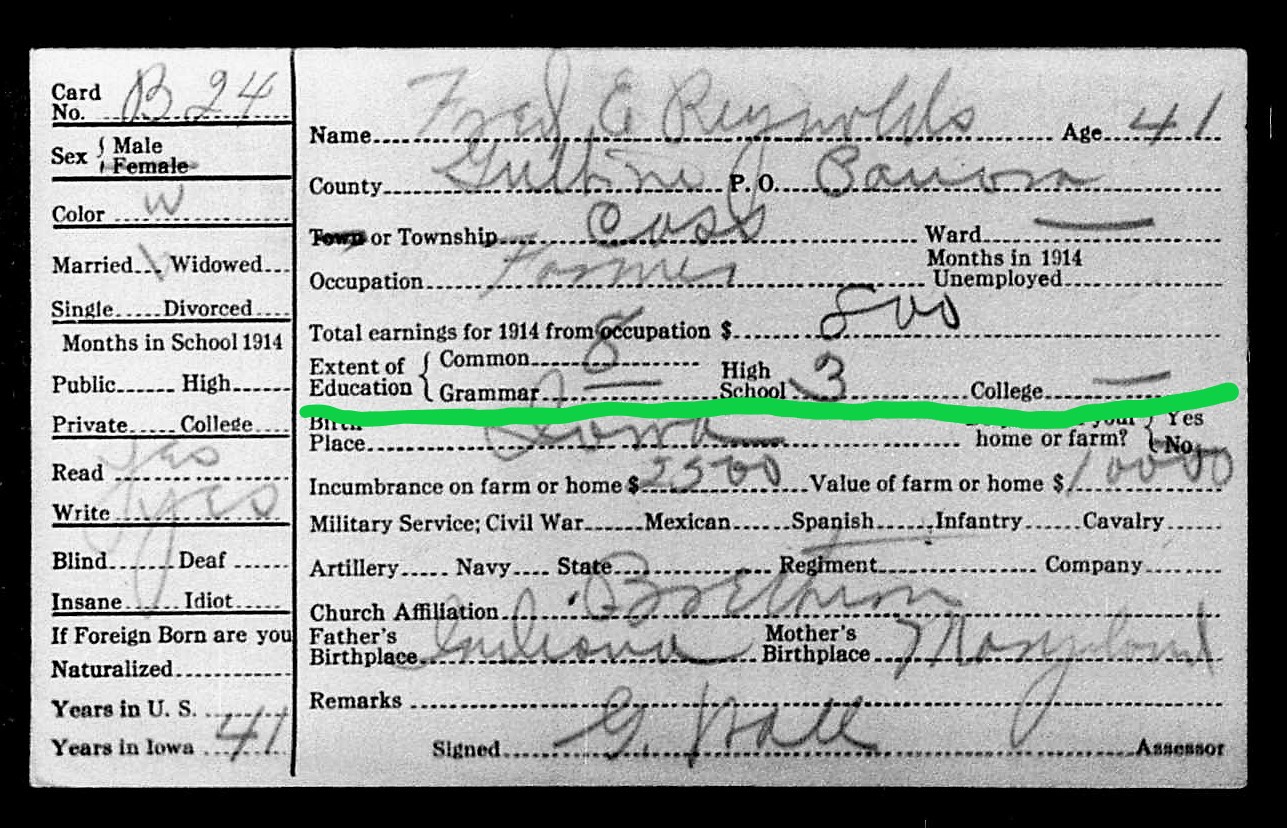 Card No. B 24
Sex { Male
Female
Color W
Married Widowed
Single Divorced
Months in School 1914
Public High
Private College
Read Yes
Write Yes
Blind Deaf
Insane Idiot
If Foreign Born are you
Naturalized
Years in U. S.
Years in Iowa 41
Name Fred E Reynolds Age 41
County Guthrie P. O. Panora
Town or Township Cass Ward —
Occupation Farmer Months in 1914 Unemployed
Total earnings for 1914 from occupation $ 800
Extent of Education { Common 8
Grammar — High School 3 College —
Birth Place Iowa your home or farm? { Yes
No
Incumbrance on farm or home $ 2500 Value of farm or home $ 10000
Military Service; Civil War Mexican Spanish Infantry Cavalry
Artillery Navy State Regiment Company
Church Affiliation
Father's Birthplace Indiana Mother's Birthplace Maryland
Remarks
Signed G. Hall Assessor